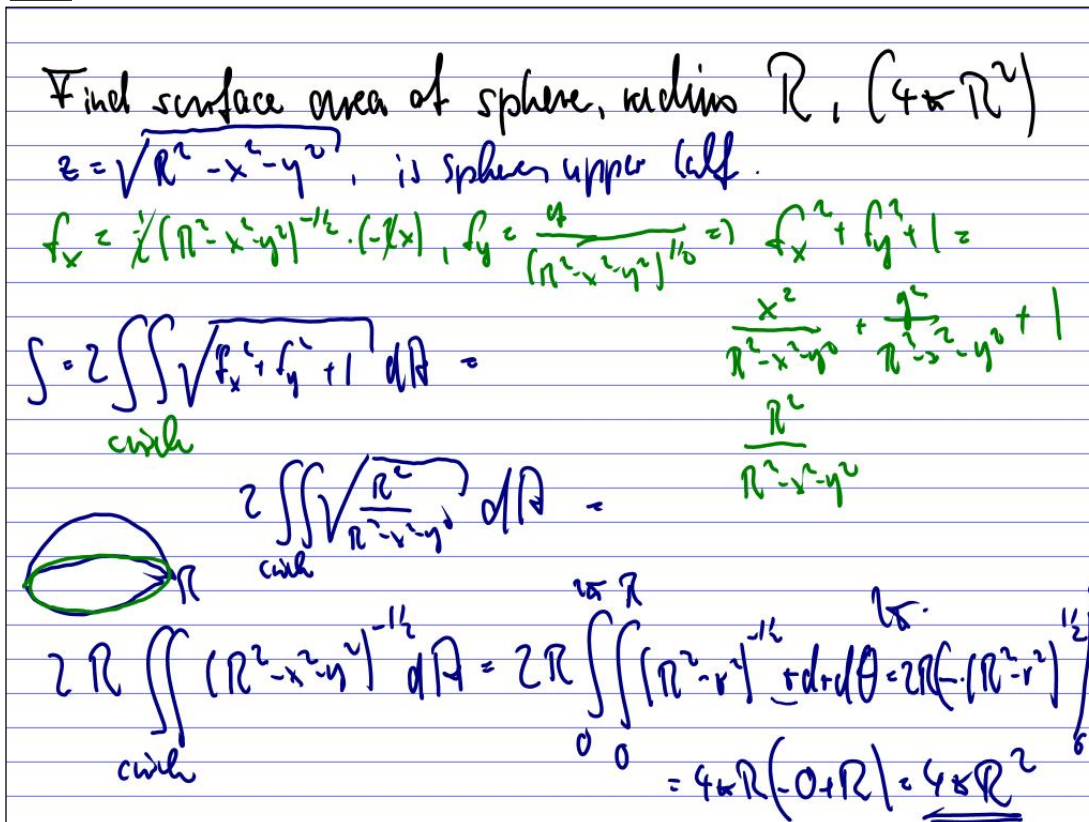 Find surface area of sphere, radius R, (4πR²)
z = √(R² - x² - y²), is spheres upper half.
f_x = 1/2 (R² - x² - y²)^(-1/2) · (-2x), f_y = y/(R² - x² - y²)^(1/2) ⇒ f_x² + f_y² + 1 =
x²/(R² - x² - y²) + y²/(R² - x² - y²) + 1
R²/(R² - x² - y²)
S = 2 ∬ √(f_x² + f_y² + 1) dA =
circle
2 ∬ √(R²/(R² - x² - y²)) dA =
circle
R
2R ∬ (R² - x² - y²)^(-1/2) dA = 2R ∫₀^2π ∫₀^R (R² - r²)^(-1/2) r dr dθ = 2R 2π · (- · (R² - r²)^(1/2) |₀
circle
= 4πR(-0 + R) = 4πR²